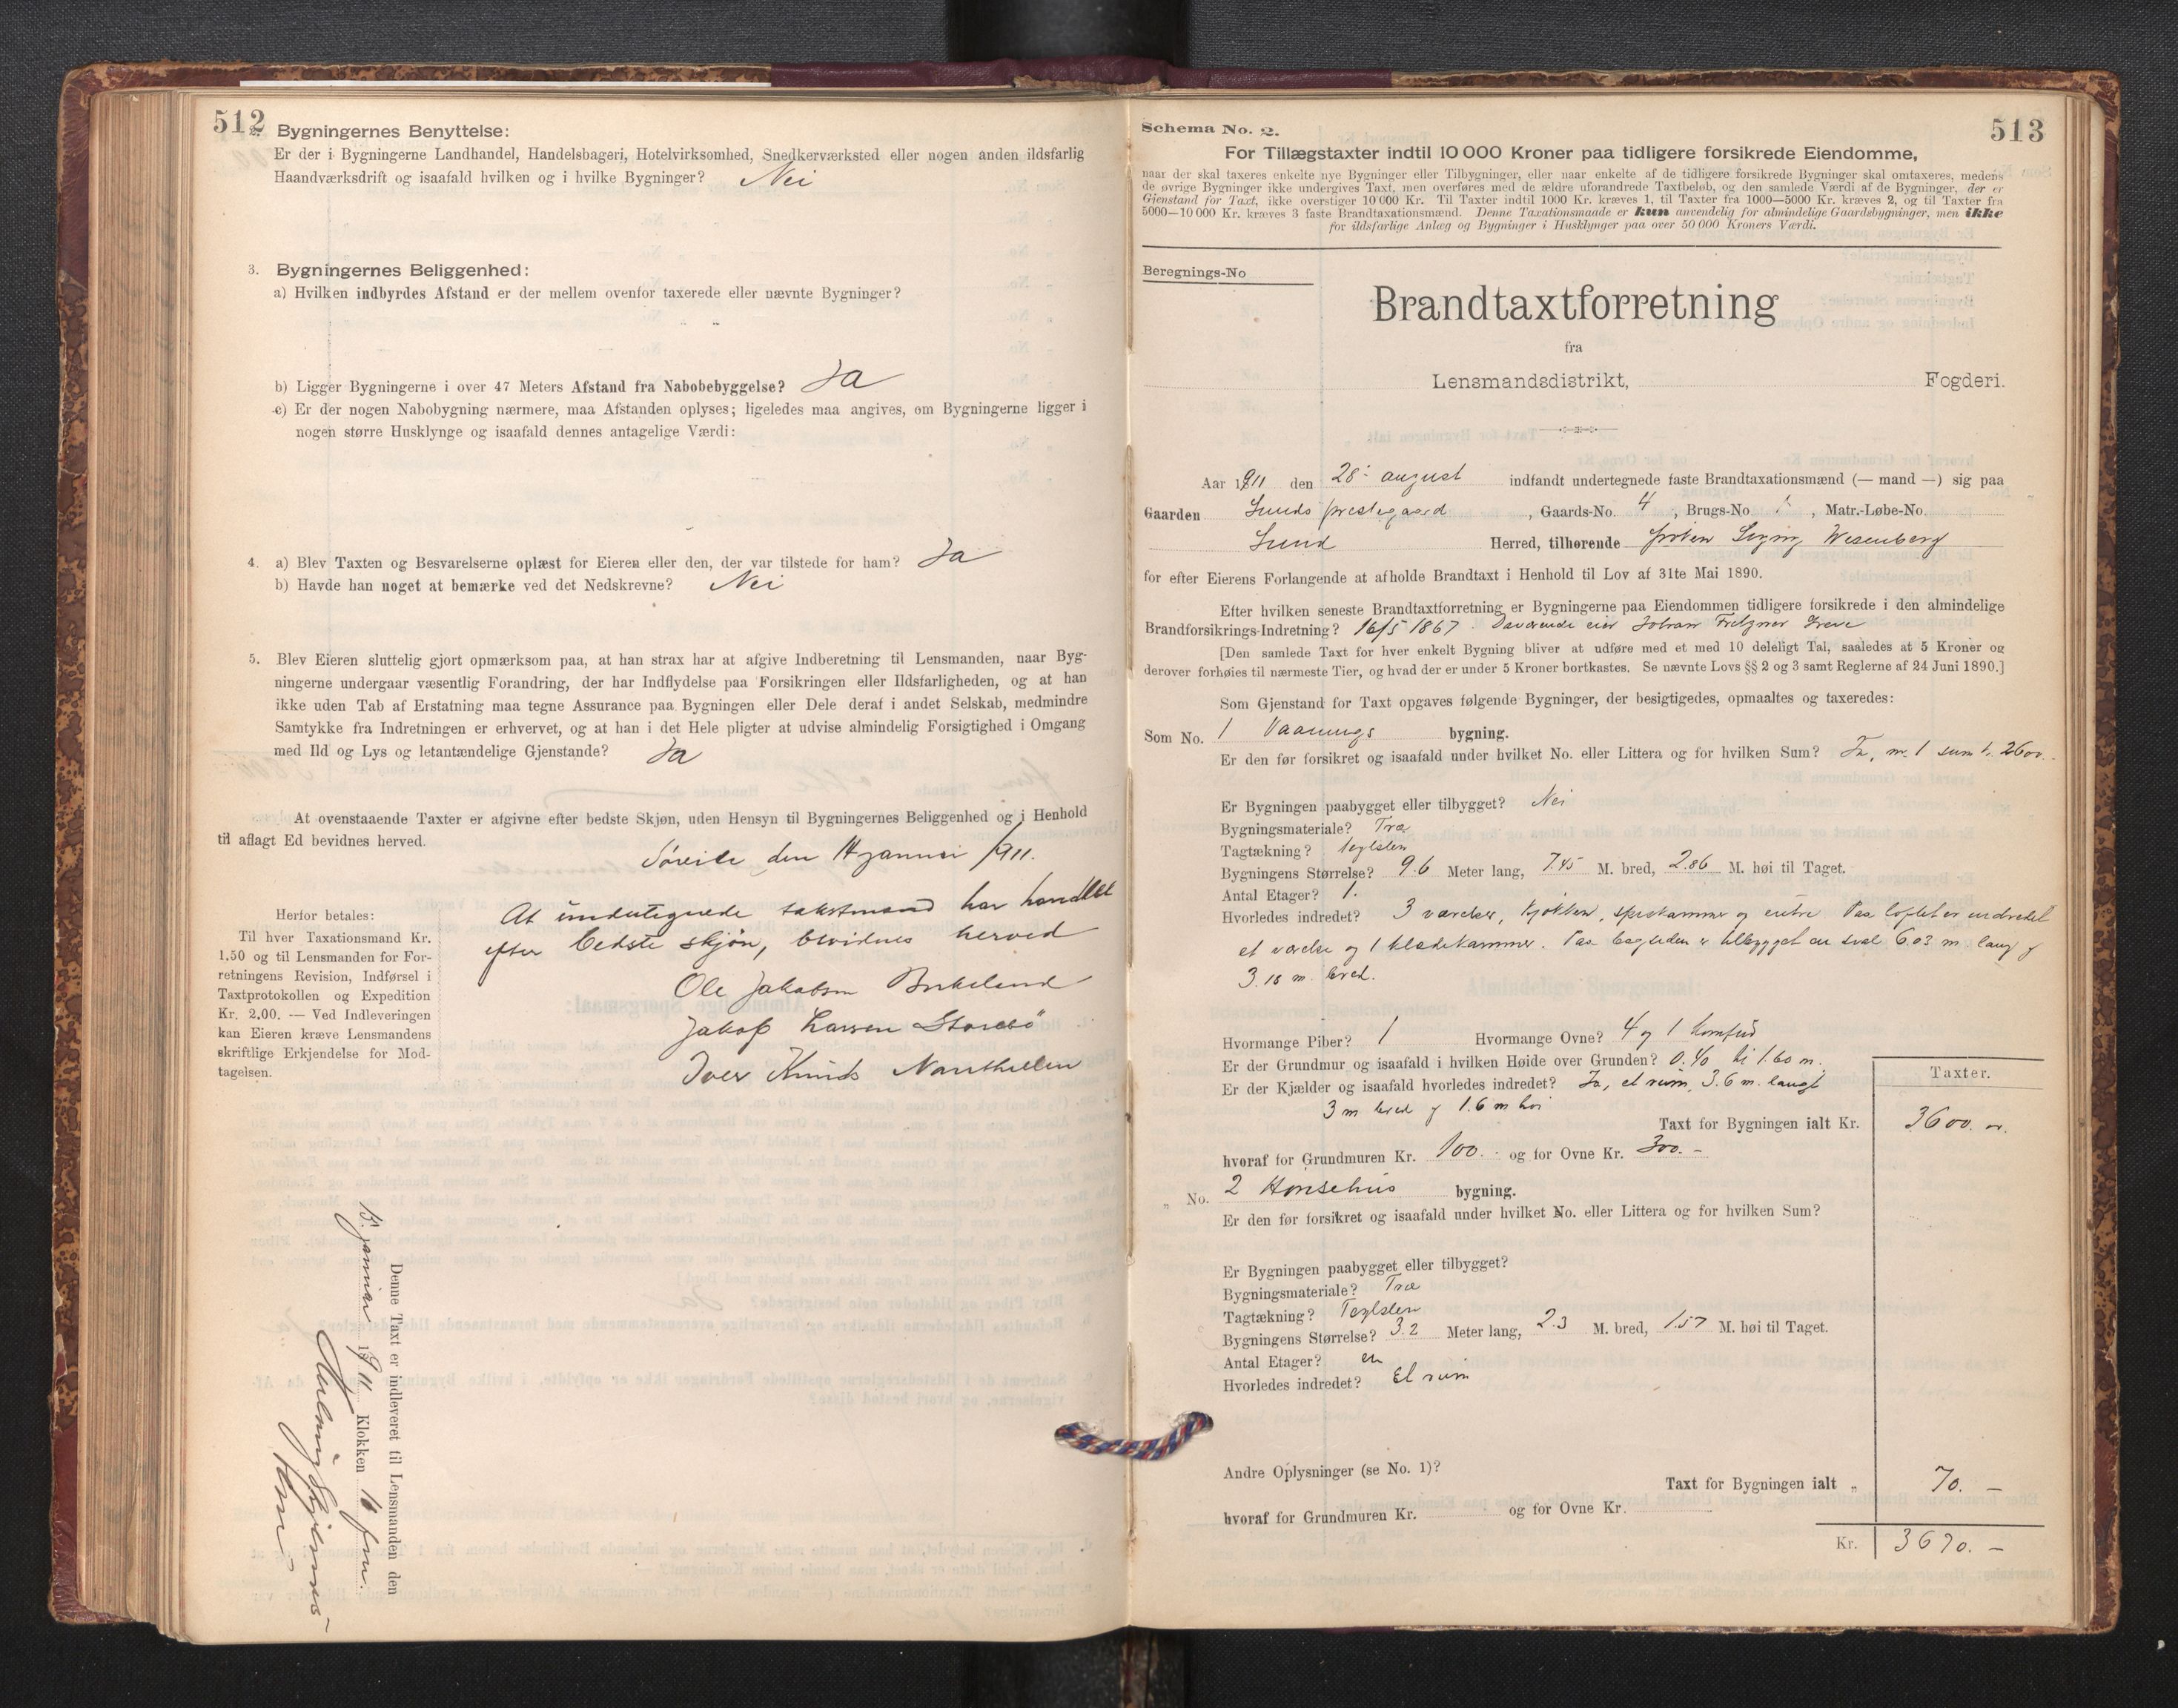 512
2. Bygningernes Benyttelse:
Er der i Bygningerne Landhandel, Handelsbageri, Hotelvirksomhed, Snedkerværksted eller nogen anden ildsfarlig
Haandværksdrift og isaafald hvilken og i hvilke Bygninger? Nei
3. Bygningernes Beliggenhed:
a) Hvilken indbyrdes Afstand er der mellem ovenfor taxerede eller nævnte Bygninger?
b) Ligger Bygningerne i over 47 Meters Afstand fra Nabobebyggelse? Ja
c) Er der nogen Nabobygning nærmere, maa Afstanden oplyses; ligeledes maa angives, om Bygningerne ligger i
nogen større Husklynge og isaafald dennes antagelige Værdi:
4. a) Blev Taxten og Besvarelserne oplæst for Eieren eller den, der var tilstede for ham? Ja
b) Havde han noget at bemærke ved det Nedskrevne? Nei
5. Blev Eieren sluttelig gjort opmærksom paa, at han strax har at afgive Indberetning til Lensmanden, naar Byg-
ningerne undergaar væsentlig Forandring, der har Indflydelse paa Forsikringen eller Ildsfarligheden, og at han
ikke uden Tab af Erstatning maa tegne Assurance paa Bygningen eller Dele deraf i andet Selskab, medmindre
Samtykke fra Indretningen er erhvervet, og at han i det Hele pligter at udvise almindelig Forsigtighed i Omgang
med Ild og Lys og letantændelige Gjenstande? Ja
At ovenstaaende Taxter er afgivne efter bedste Skjøn, uden Hensyn til Bygningernes Beliggenhed og i Henhold
til aflagt Ed bevidnes herved.
den 14 januar 1911.
At undertegnede takstmænd har handlet
efter bedste skjøn, bevidnes herved
Ole Jakobsen Birkeland
Jakob Larsen Storebø
Iver Knuds
Herfor betales:
Til hver Taxationsmand Kr.
1.50 og til Lensmanden for For-
retningens Revision, Indførsel i
Taxtprotokollen og Expedition
Kr. 2.00. — Ved Indleveringen
kan Eieren kræve Lensmandens
skriftlige Erkjendelse for Mod-
tagelsen.
Denne Taxt er indleveret til Lensmanden den
15. januar 1911 Klokken 10 fm.
513
Schema No. 2.
For Tillægstaxter indtil 10 000 Kroner paa tidligere forsikrede Eiendomme,
naar der skal taxeres enkelte nye Bygninger eller Tilbygninger, eller naar enkelte af de tidligere forsikrede Bygninger skal omtaxeres, medens
de øvrige Bygninger ikke undergives Taxt, men overføres med de ældre uforandrede Taxtbeløb, og den samlede Værdi af de Bygninger, der er
Gjenstand for Taxt, ikke overstiger 10 000 Kr. Til Taxter indtil 1000 Kr. kræves 1, til Taxter fra 1000—5000 Kr. kræves 2, og til Taxter fra
5000—10 000 Kr. kræves 3 faste Brandtaxationsmænd. Denne Taxationsmaade er kun anvendelig for almindelige Gaardsbygninger, men ikke
for ildsfarlige Anlæg og Bygninger i Husklynger paa over 50 000 Kroners Værdi.
Beregnings-No
Brandtaxtforretning
fra
Lensmandsdistrikt, Fogderi.
Aar 1911 den 28. august indfandt undertegnede faste Brandtaxationsmænd (— mand —) sig paa
Gaarden Sunds prestegaard, Gaards-No. 4, Brugs-No. 1, Matr.-Løbe-No.
Sund Herred, tilhørende frøken Signy Wesenberg
for efter Eierens Forlangende at afholde Brandtaxt i Henhold til Lov af 31te Mai 1890.
Efter hvilken seneste Brandtaxtforretning er Bygningerne paa Eiendommen tidligere forsikrede i den almindelige
Brandforsikrings-Indretning? 16/5 1867. Daværende eier Johan Fritzner Greve
[Den samlede Taxt for hver enkelt Bygning bliver at udføre med et med 10 deleligt Tal, saaledes at 5 Kroner og
derover forhøies til nærmeste Tier, og hvad der er under 5 Kroner bortkastes. Se nævnte Lovs §§ 2 og 3 samt Reglerne af 24 Juni 1890.]
Som Gjenstand for Taxt opgaves følgende Bygninger, der besigtigedes, opmaaltes og taxeredes:
Som No. 1 Vaanings bygning.
Er den før forsikret og isaafald under hvilket No. eller Littera og for hvilken Sum? Ja, nr. 1 sum kr. 2600.
Er Bygningen paabygget eller tilbygget? Nei
Bygningsmateriale? Træ
Tagtækning? Teglsten
Bygningens Størrelse? 9.6 Meter lang, 7.45 M. bred, 2.86 M. høi til Taget.
Antal Etager? 1.
Hvorledes indredet? 3 værelser, kjøkken, spiskammer og entre. Paa loftet er indredet
et værelse og 1 klædekammer. Paa bagsiden er tilbygget en sval 6.03 m. lang og
3.15 m. bred.
Hvormange Piber? 1 Hvormange Ovne? 4 og 1 komfur
Er der Grundmur og isaafald i hvilken Høide over Grunden? 0.40 til 1.60 m.
Er der Kjælder og isaafald hvorledes indredet? Ja, et rum, 3.6 m. langt
3 m bred og 1.6 m høi
Taxter.
Taxt for Bygningen ialt Kr. 3600. -
hvoraf for Grundmuren Kr. 100. - og for Ovne Kr. 300. -
" No. 2 Hønsehus bygning.
Er den før forsikret og isaafald under hvilket No. eller Littera og for hvilken Sum?
Er Bygningen paabygget eller tilbygget?
Bygningsmateriale? Træ
Tagtækning? Teglsten
Bygningens Størrelse? 3.2 Meter lang, 2.3 M. bred, 1.57 M. høi til Taget.
Antal Etager? en
Hvorledes indredet? Et rum
Andre Oplysninger (se No. 1)?
Taxt for Bygningen ialt " 70. —
hvoraf for Grundmuren Kr. og for Ovne Kr.
Kr. 3670. —